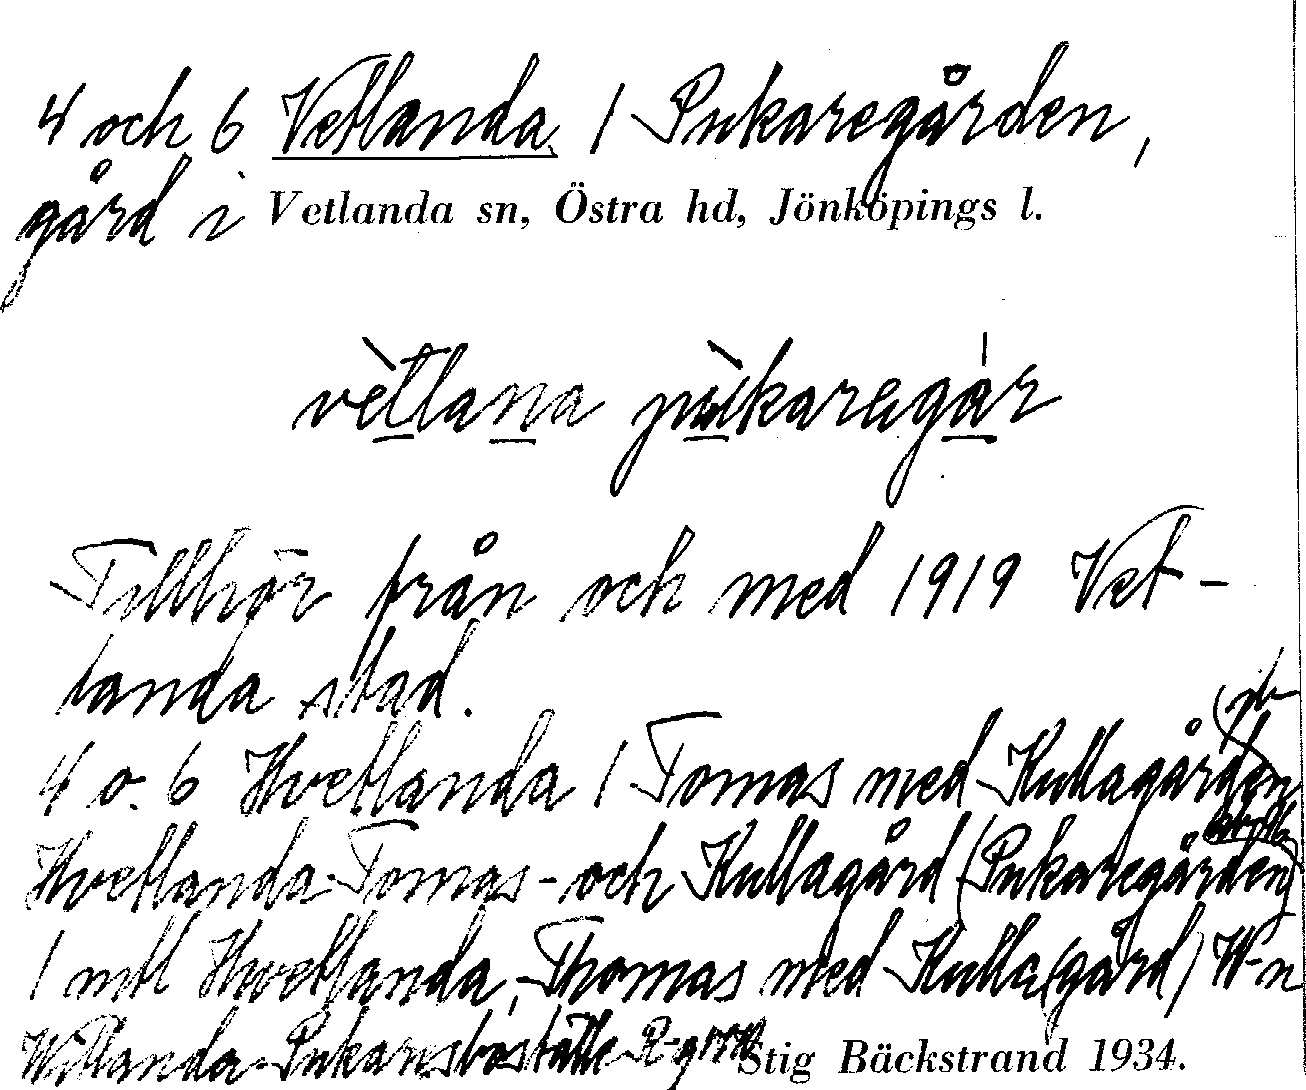 4 och 6 Vetlanda / Pukaregården,
gård i Vetlanda sn, Östra hd, Jönköpings l.
vètlana pùkaregár
Tillhör från och med 1919 Vet-
landa stad.
4 o. 6 Hvetlanda / Tomas med Kullagården
Hvetlanda-Tomas- och Kullagård (Pukaregården)
1 mtl Hvetlanda, Thomas med Kulla(gård)
Stig Bäckstrand 1934.